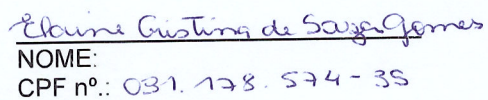 Elaine Cristina de Souza Gomes
NOME:
CPF nº.: 031.178.574-35